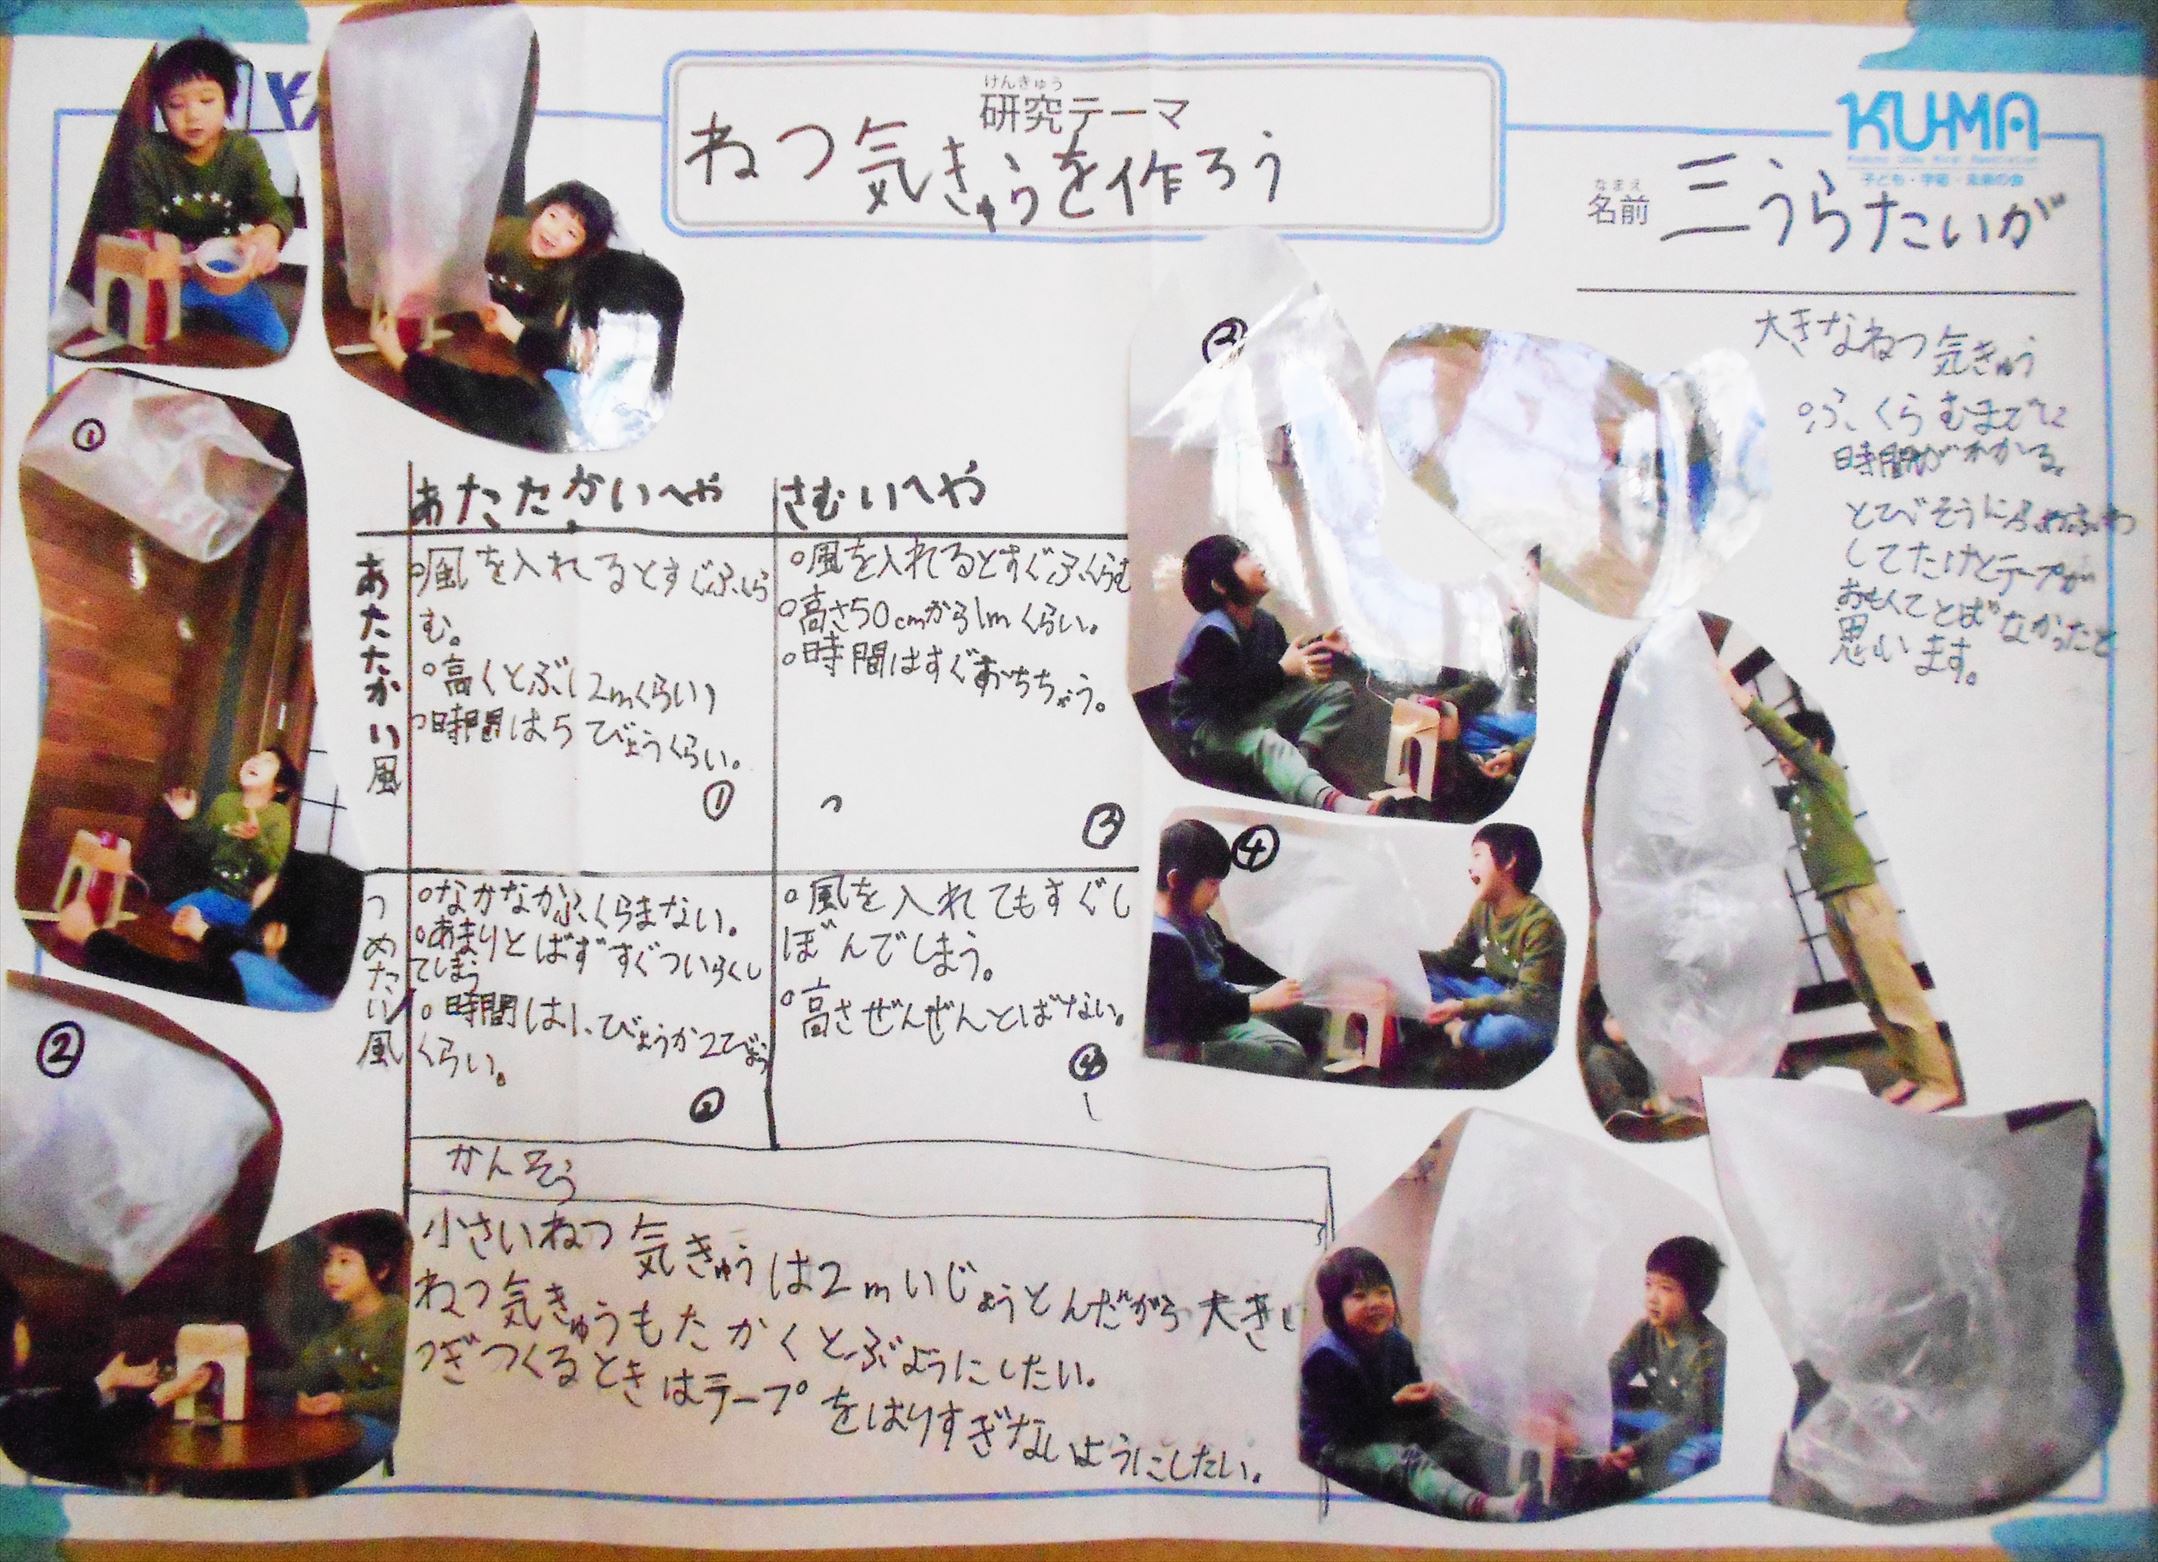 けんきゅう
研究テーマ
ねつ気きゅうを作ろう
KUMA
子ども・宇宙・未来の会
なまえ
名前
三うらたいが
大きなねつ気きゅう
○ふくらむまでに
時間がかかる。
とびそうにふわふわ
してたけどテープが
おもくてとばなかったと
思います。
①
あたたかいへや
さむいへや
あたたかい風
○風を入れるとすぐふくら
む。
○高くとぶ(2mくらい)
○時間は5びょうくらい。
①
○風を入れるとすぐふくらむ
○高さ50cmから1mくらい。
○時間はすぐおちちゃう。
③
つめたい風
○なかなかふくらまない。
○あまりとばずすぐついらくし
てしまう
○時間は1びょうか2びょう
くらい。
②
○風を入れてもすぐし
ぼんでしまう。
○高さぜんぜんとばない。
④
③
④
②
かんそう
小さいねつ気きゅうは2mいじょうとんだから大きい
ねつ気きゅうもたかくとぶようにしたい。
つぎつくるときはテープをはりすぎないようにしたい。